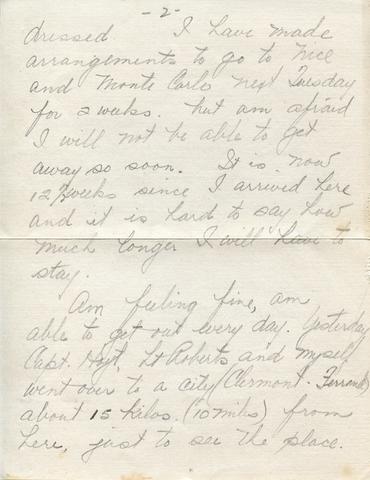 -2-
dressed. I have made
arrangements to go to Nice
and Monte Carlo next Tuesday
for 2 weeks. but am afraid
I will not be able to get
away so soon. It is now
12 weeks since I arrived here
and it is hard to say how
much longer I will have to
stay.
Am feeling fine, am
able to get out every day. Yesterday
Capt. Hoyt, Lt Roberts and myself
went over to a city (Clermont-Ferrand)
about 15 kilos. (10 miles) from
here, just to see the place.